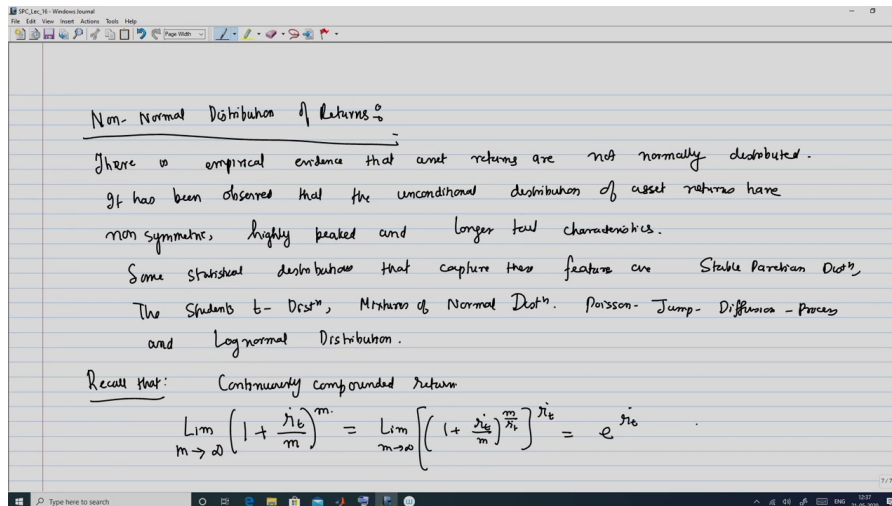 SPC_Lec_16 - Windows Journal
File Edit View Insert Actions Tools Help
Page Width
Non-Normal Distribution of Returns:
There is empirical evidence that asset returns are not normally distributed.
It has been observed that the unconditional distribution of asset returns have
non symmetric, highly peaked and longer tail characteristics.
Some statistical distributions that capture these feature are Stable Paretian Distⁿ,
The Students t- Distⁿ, Mixtures of Normal Distⁿ. Poisson-Jump-Diffusion-Process
and Lognormal Distribution.
Recall that: Continuously compounded return
Lim m→∞ (1 + r_it/m)^m = Lim m→∞ [(1 + r_it/m)^(m/r_it)]^r_it = e^r_it
7/7
Type here to search
ENG
12:37
21-05-2020